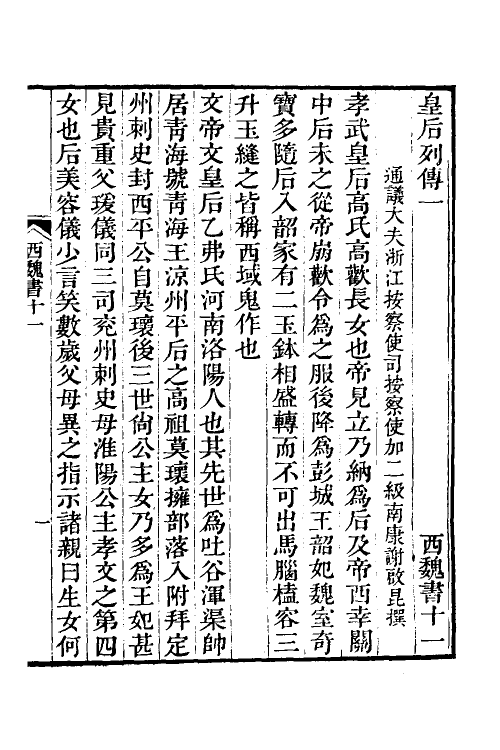 皇后列傳一　西魏書十一
通議大夫浙江按察使司按察使加二級南康謝啟昆撰
孝武皇后高氏高歡長女也帝見立乃納爲后及帝西幸關
中后未之從帝崩歡令爲之服後降爲彭城王韶妃魏室奇
寶多隨后入韶家有二玉鉢相盛轉而不可出馬腦榼容三
升玉縫之皆稱西域鬼作也
文帝文皇后乙弗氏河南洛陽人也其先世爲吐谷渾渠帥
居靑海號靑海王涼州平后之高祖莫瓌擁部落入附拜定
州刺史封西平公自莫瓌後三世尙公主女乃多爲王妃甚
見貴重父瑗儀同三司兖州刺史母淮陽公主孝文之第四
女也后美容儀少言笑數歲父母異之指示諸親曰生女何
西魏書十一
一